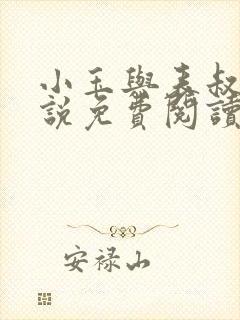 小玉與表叔
說免費閱讀
安祿山